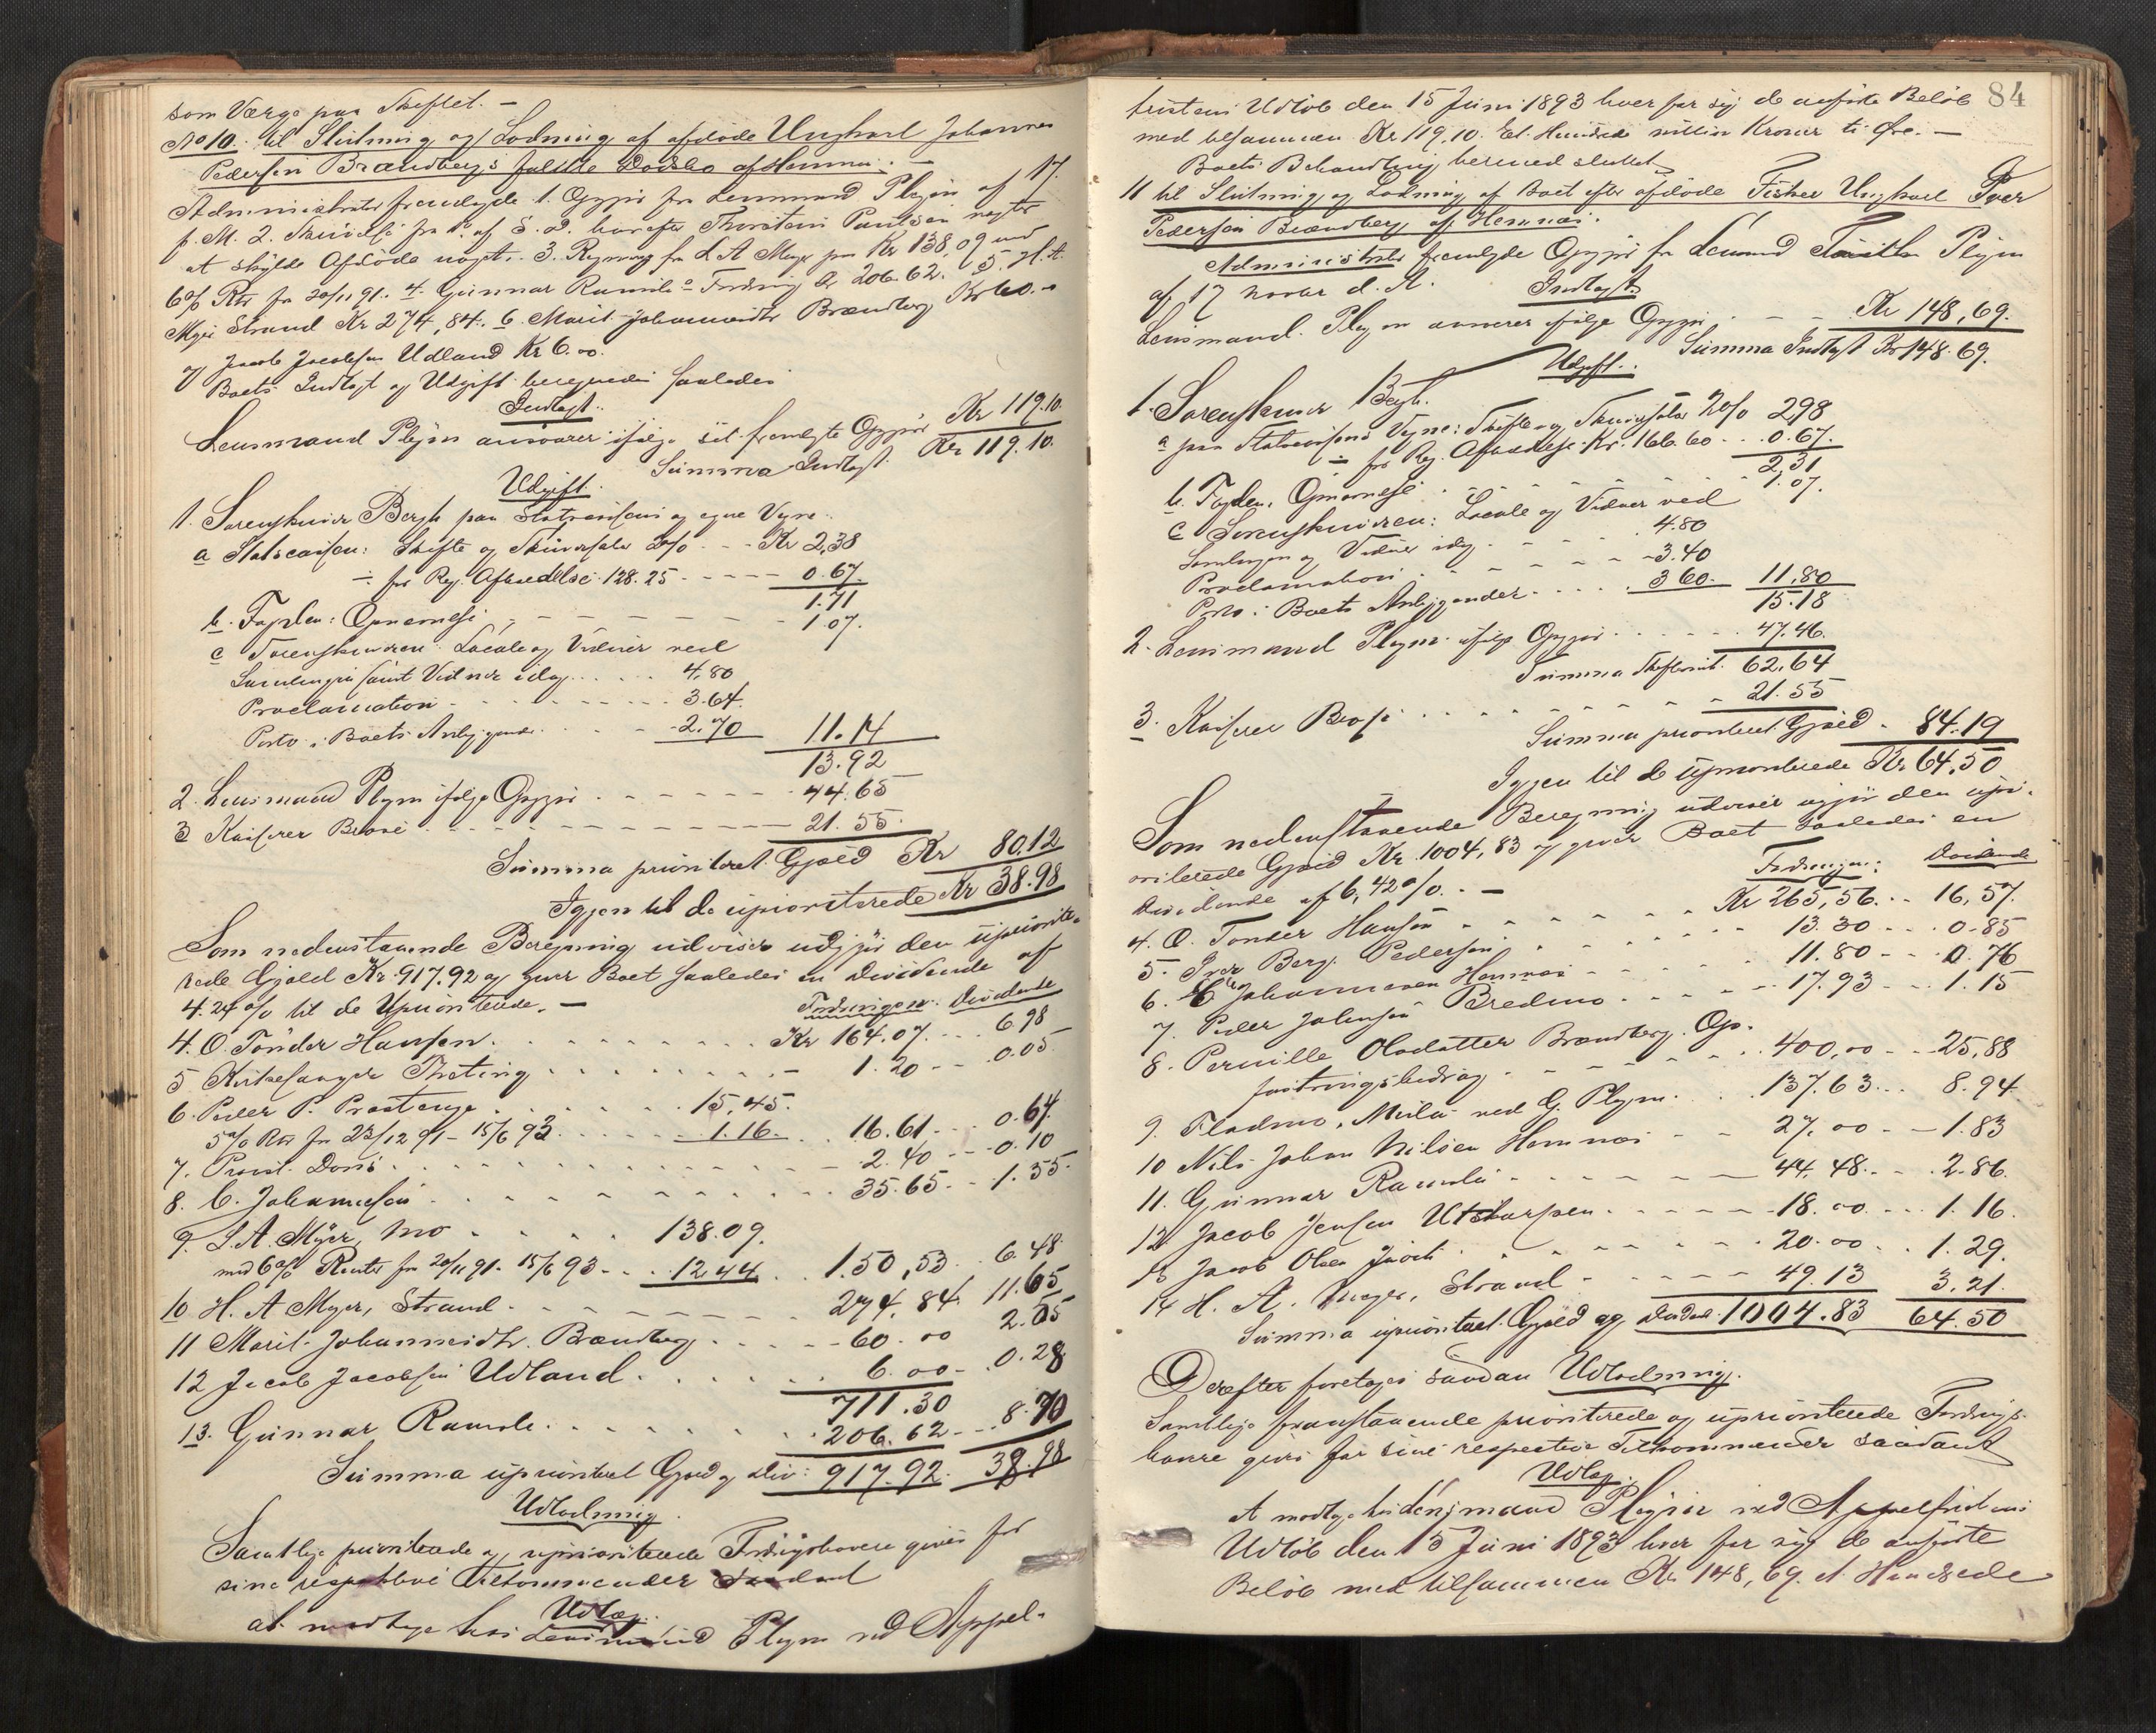 som Værge paa Skiftet. –
No 10. til Slutning og Lodning af afdøde Ungkarl Johannes
Pedersen Brændbergs fallite Dødsbo af Hemnæs. –
Administrator fremlagde 1. Opgjør fra Lensmand Plejm af 17.
f. M. 2. Skrivelse fra af S. D. hvorefter Thorstein Paulsen negter
at skylde Afdöde noget. 3. Regning fra L A Meyer paa Kr 138,09 med
6% Rtr fra 20/11 91. 4. Gunnar Ramsli Fordring Kr 206.62. 5. H. A.
Myer Strand Kr 274,84. 6. Marit Johannesdtr Brændberg Kr 60.–
og Jacob Jacobsen Udland Kr 6.00.
Boets Indtægt og Udgift beregnedes saaledes
Indtægt.
Lensmand Plejm ansvarer ifølge sit fremlagte Opgjør Kr 119.10.
Summa Indtægt. Kr 119.10.
Udgift.
1. Sorenskriver Bergh paa Statscassens og egne Vegne.
a Statscassen: Skifte og Skriversalær 2% - - Kr 2,38
÷ for Reg. Afhændelse 128.25 - - - - - 0.67.
1.71
b. Fogden: Opnævnelse - - - - - - 1.07.
c Sorenskriveren: Locale og Vidner ved
Samlingen samt Vidner idag . . . . . 4,80
Proclamation - - - - - - - 3.64.
Porto i Boets Anliggende . . . -2.70 11.14
13.92
2. Lensmand Plejm ifølge Opgjør - - - - - - 44.65
3 Kasserer Brose - - - - - - - - - 21.55.
Summa prioriteret Gjæld Kr 80.12
Igjen til de uprioriterede Kr 38.98
Som nedenstaaende Beregning udviser udgjør den upriorite-
rede Gjæld Kr. 917.92 og giver Boet saaledes en Dividende af
4.24% til de Uprioriterede. –
Fordringer. Dividende
4. O. Tönder Hansen . . . . . . . . . Kr 164.07. . . . 6.98
5 Kirkesanger Theting . . . . . . . . - 1.20 - - 0.05.
6. Peder P. Prestenge . . . . . . 15,45.
5% Rtr fra 23/12 91 – 15/6 93 . . . . . 1.16. . . 16.61 . . . 0.64.
7. Provst Dons . . . . . . . . . . 2.40 - - 0.10
8. C. Johannesen . . . . . . . . . . 35.65. - - 1.55.
9. L. A. Myer, Mo - - . . . 138.09.
med 6% Renter fra 20/11 91 - 15/6 93 - . . 12,44 . . 150,53 . . 6.48
10 H. A Myer, Strand - - - - - - 274.84. 11.65
11 Marit Johannesdtr. Brændberg . . . - - 60.00 2.55
12 Jacob Jacobsen Udland . . . . . . 6.00 - 0.28
711.30
13. Gunnar Ramsli . . . . . . . 206.62 - - 8.70
Summa uprioriteret Gjæld og Div: 917.92. 38.98
Udlodning.
Samtlige prioriterede og uprioriterede Fordringshavere gives for
sine respektive Tilkommender saadant
Udlæg:
at modtage hos Lensmand Plejm ved Appel-
84
fristens Udløb den 15 Juni 1893 hver for sig de anførte Beløb
med tilsammen Kr 119,10. Et Hundrede nitten Kroner ti Øre. –
Boets Behandling hermed sluttet
11 til Slutning og Lodning af Boet efter afdøde Fisker Ungkarl Iver
Pedersen Brændberg af Hemnæs.
Administrator fremlagde Opgjør fra Lensmand Plejm
af 17 Novbr d. A. Indtægt.
Lensmand Plejm ansvarer ifølge Opgjør - - - Kr 148,69.
Summa Indtægt Kr 148.69.
Udgift.
1. Sorenskriver Bergh.
a paa Statscassens Vegne: Skifte og Skriversalær 2% 2,98
÷ for Reg. Afhændelse Kr. 166.60 - . . 0.67.
2,31
b. Fogden, Opnævnelse . . . . . . . 1.07.
c Sorenskriveren: Locale og Vidner ved
Samlingen og Vidner idag - - - - . 4.80
Proclamation . - - - - - - 3.40
Porto i Boets Anliggender . . . . . 3 60. 11,80
15.18
2. Lensmand Plejm ifølge Opgjør . . . . . 47.46.
Summa Skifteomk. 62,64
3. Kasserer Brose . . . . . . . . . 21.55
Summa prioriteret Gjæld . 84.19
Igjen til de uprioriterede Kr 64,50
Som nedenstaaende Beregning udviser udgjør den upri-
oriterede Gjæld Kr. 1004,83 og giver Boet saaledes en
Dividende af 6,42%. –
Fordringer: Dividende
4. O. Tonder Hansen - - - - - - Kr 265,56. . . 16,57.
5. Iver Berg. Pedersen . . . . . . . 13.30 - - . 0.85
6. C Johannesen Hemnæs - - - - - 11.80 - - 0.76
7. Peder Johnsen Bredmo . . . . - - 17.93 - - . 1.15
8. Pernille Olsdatter Brændberg. Op-
fostringsbidrag . - - - - - - - . 400,00 - - 25,88
9. Fladmo, Meila ved G. Plejm . . 137.63 . . . 8.94.
10 Nils Johan Nilsen Hemnæs - - - 27.00 - - 1.83
11. Gunnar Ramsli - - - - - - - 44.48. - . 2.86.
12 Jacob Jensen Utskarpen . . . . . - - 18.00 . . . 1.16.
13 Jacob Olsen . . . . . . . 20.00 . . 1.29.
14 H. A. Meyer, Strand - - - - - 49.13 3.21.
Summa uprioriteret Gjæld og Dividende. 1004.83 64.50
Derefter foretages saadan Udlodning.
Samtlige foranstaaende prioriterede og uprioriterede Fordrings-
havere gives for sine respective Tilkommender saadant
Udlæg.
At modtage hos Lensmand Plejm ved Appelfristens
Udløb den 15 Juni 1893 hver for sig de anførte
Beløb med tilsammen Kr 148,69. et Hundrede